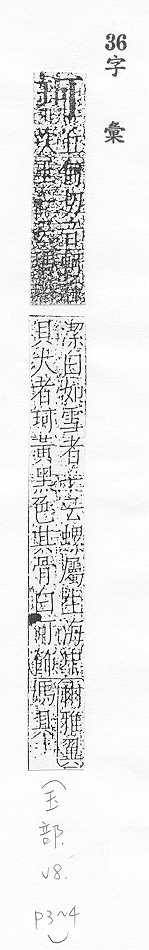 36字彙
珂
丘何切音軻
次玉
瑪瑙
潔白如雪者一云螺屬生海涯爾雅翼
貝大者珂黃黑色其骨白可飾馬具
(玉部.
v8.
p3~4)